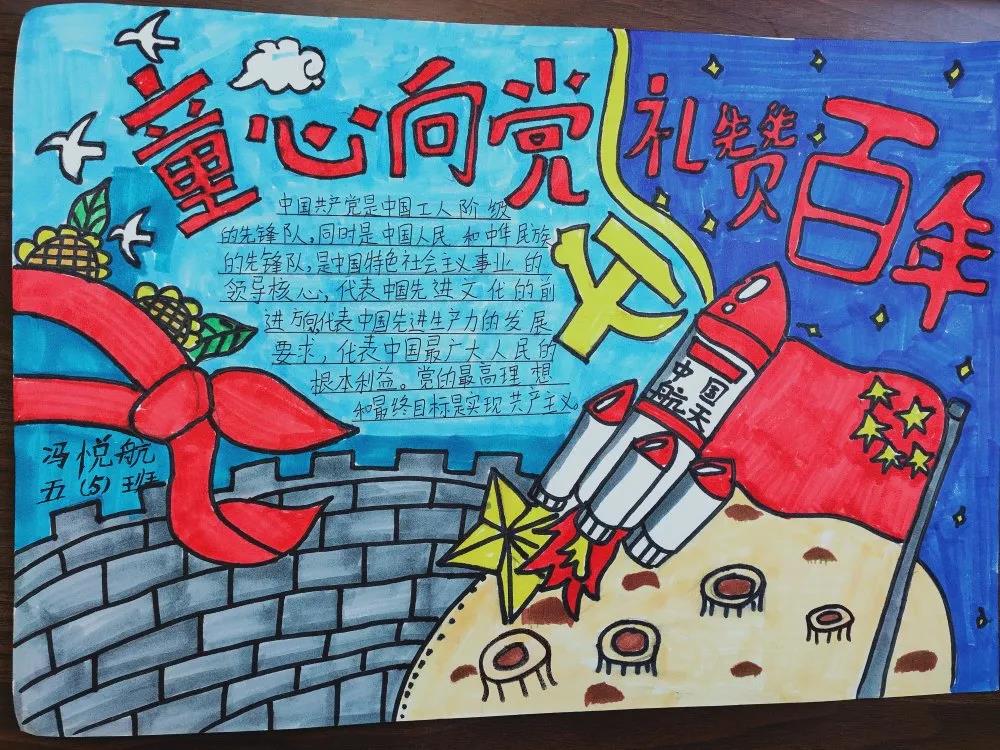 童心向党
礼赞百年
中国共产党是中国工人阶级
的先锋队,同时是中国人民和中华民族
的先锋队,是中国特色社会主义事业的
领导核心,代表中国先进文化的前
进方向,代表中国先进生产力的发展
要求,代表中国最广大人民的
根本利益。党的最高理想
和最终目标是实现共产主义。
中国
航天
冯悦航
五(5)班